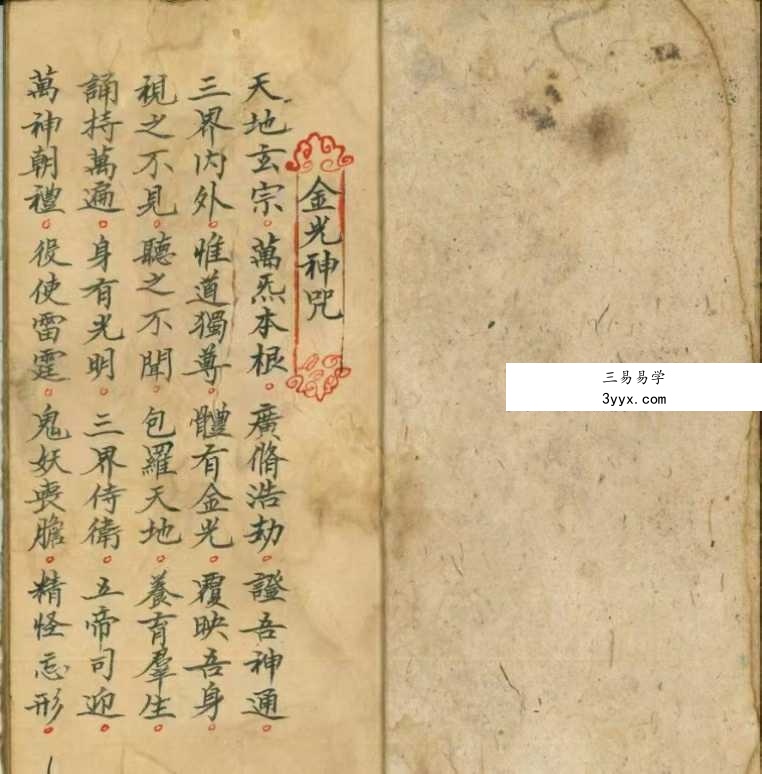 金光神咒
天地玄宗。萬炁本根。廣脩浩劫。證吾神通。
三界内外。惟道獨尊。體有金光。覆映吾身。
視之不見。聽之不聞。包羅天地。養育羣生。
誦持萬遍。身有光明。三界侍衛。五帝司迎。
萬神朝禮。役使雷霆。鬼妖喪膽。精怪忘形。
三易易学
3yyx.com